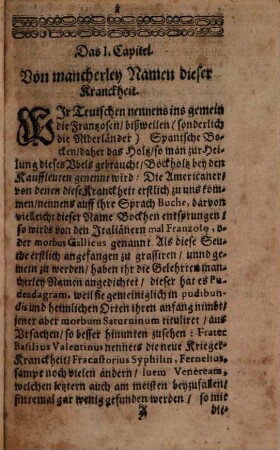 Das I. Capitel.
Von mancherley Namen dieser
Kranckheit.
WIr Teutschen nennens ins gemein
die Frantzosen/ bißweilen/ (sonderlich
die Niderländer) Spanische Bo-
cken/ daher das Holtz/ so man zur Hei-
lung dieses Vbels gebraucht/ Bockholtz bey den
Kauffleuten genennt wird: Die Americaner/
von denen diese Kranckheit erstlich zu uns kom-
men/ nennens auff ihre Sprach Buche, darvon
vielleicht dieser Name Bockhen entsprungen/
so wirds von den Italiänern mal Franzoso, o-
der morbus Gallicus genannt. Als diese Seu-
che erstlich angefangen zu grassiren/ unnd ge-
mein zu werden/ haben ihr die Gelehrten man-
cherley Namen angedichtet/ dieser hat es Pu-
dendagram, weil sie gemeiniglich in pudibun-
dis und heimlichen Orten ihren anfang nimbt/
jener aber morbum Saturninum tituliret/ aus
Vrsachen/ so besser hinunten zusehen: Frater
Basilius Valentinus nennets die neue Krieger-
Kranckheit/ Fracastorius Syphilin, Fernelius,
sampt noch vielen ändern/ luem Veneream,
welchen letztern auch am meisten beyzufallen/
sintemal gar wenig gefunden werden/ so mit
A
die-